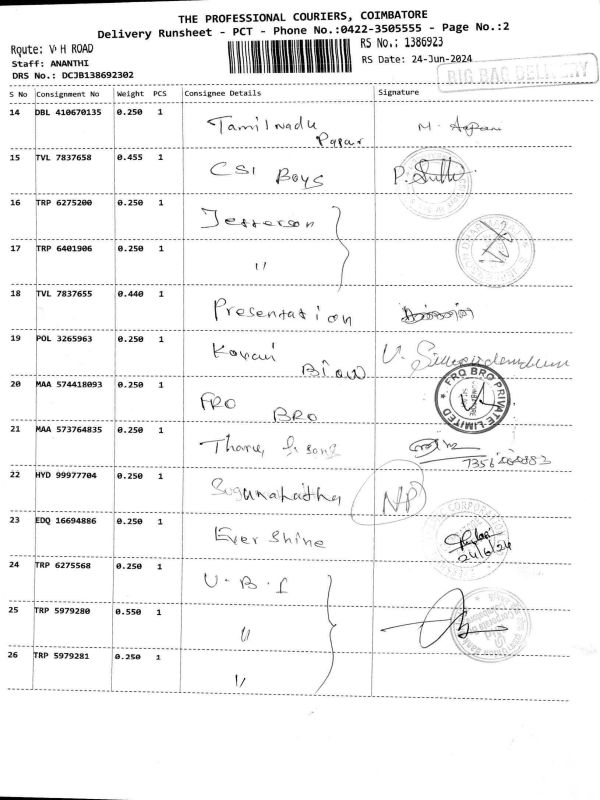 THE PROFESSIONAL COURIERS, COIMBATORE
Delivery Runsheet - PCT - Phone No.:0422-3505555 - Page No.:2
Route: V H ROAD
RS No.: 1386923
Staff: ANANTHI
RS Date: 24-Jun-2024
DRS No.: DCJB138692302
BIG BAG DELIVERY
S No Consignment No Weight PCS Consignee Details Signature
14 DBL 410670135 0.250 1 Tamilnadu Papar M.
15 TVL 7837658 0.455 1 CSI Boys P.
16 TRP 6275200 0.250 1 Jefferson
17 TRP 6401906 0.250 1 "
18 TVL 7837655 0.440 1 Presentation
19 POL 3265963 0.250 1 Kovai V.
20 MAA 574418093 0.250 1 FRO BRO FRQ BRO PRIVATE LIMITED
21 MAA 573764835 0.250 1 & sons
22 HYD 99977704 0.250 1 NP
23 EDQ 16694886 0.250 1 Ever Shine 24/6/24
24 TRP 6275568 0.250 1 U.B.I
25 TRP 5979280 0.550 1 "
26 TRP 5979281 0.250 1 "